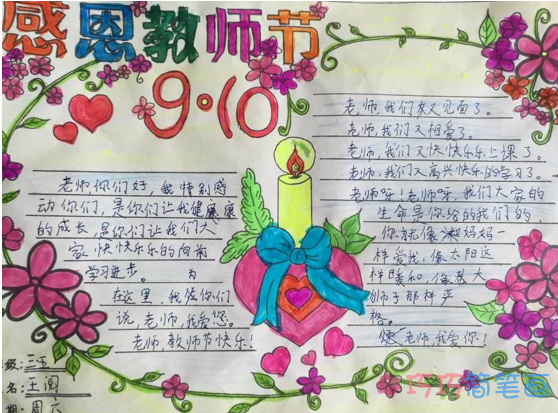 感恩教师节
9·10
老师你们好,我特别感
动你们,是你们让我健康
的成长,是你们让我们大
家快快乐乐的向前
学习进步。为
在这里,我
说,老师,我爱您。
老师,教师节快乐!
老师,我们来又见面了。
老师,我们又相爱了。
老师,我们又快快乐乐上课了。
老师,我们又高兴快乐的学习了。
老师呀!老师呀,我们大家的
生命是你给的我们的
你就像妈妈一
样爱我,像太阳这
样暖和,像
狮子那样严
格。
老师,我爱你!
级:三五
名:王阅
期:周六
巧巧简笔画